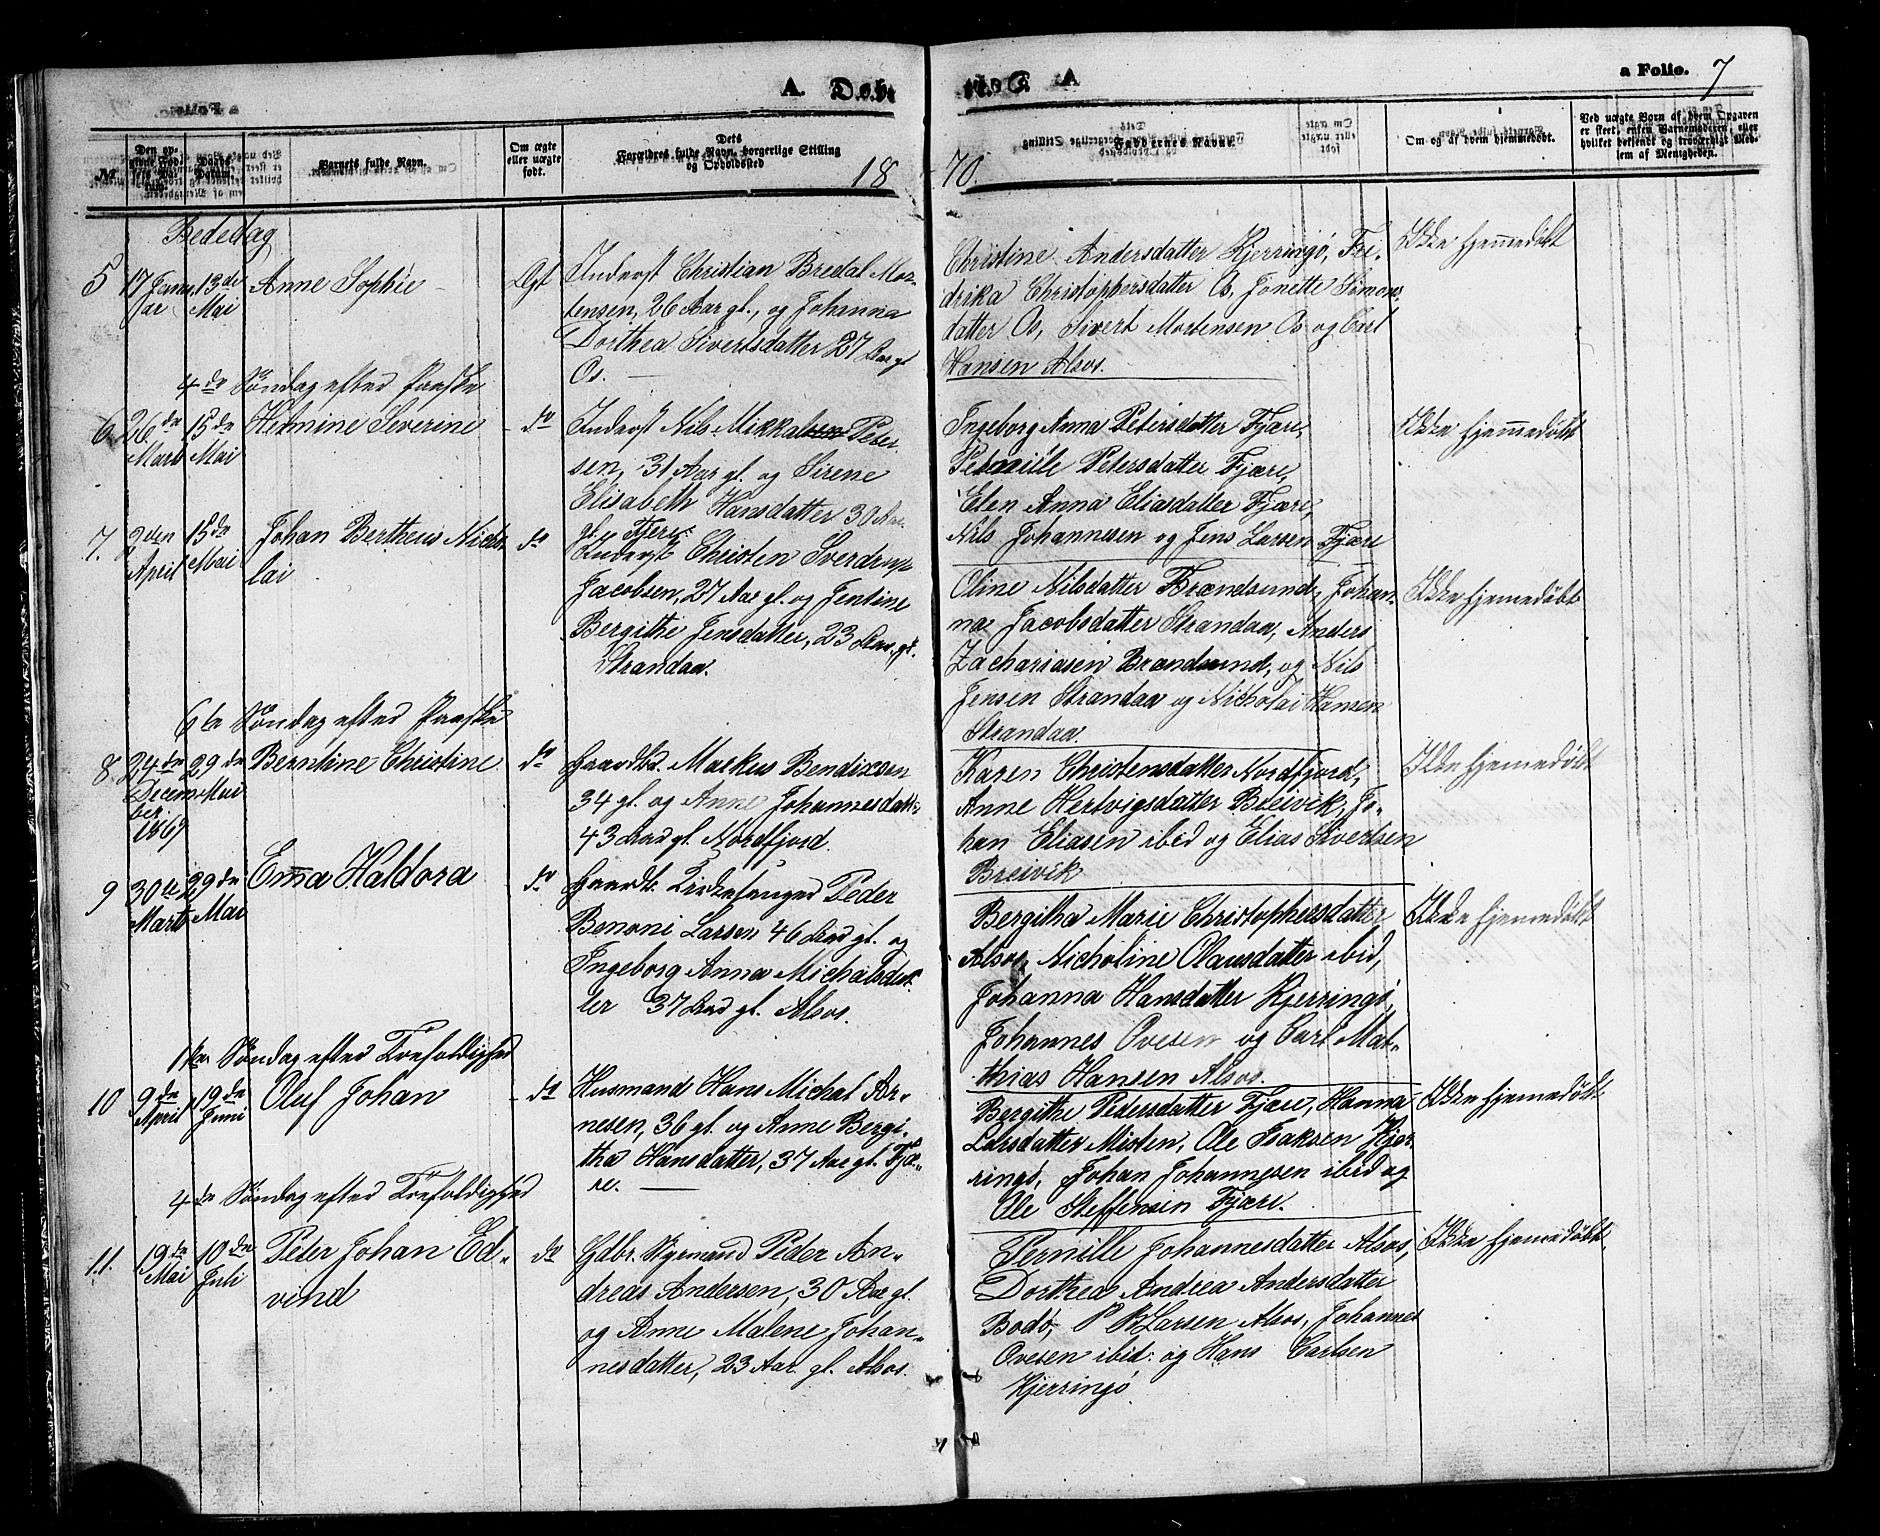 A. Døb-
te. A
a Folio. 7
№
Den op-
givne Fød-
sels Da-
tum.
Daabs
Datum.
Barnets fulde Navn.
Om ægte
eller uægte
født.
Dets
Forældres fulde Navn, borgerlige Stilling
og Opholdssted
Faddernes Navne.
Om og af hvem hjemmedøbt.
Ved uægte Børn af hvem Opgaven
er skeet, enten Barnemoderen, eller
hvilket bekjendt og troværdigt Med-
lem af Menigheden.
18
70.
Bededag
5
17 Janu-
ar
13de
Mai
Anne Sophie
Ægt
Inderst Christian Bredal Mor-
tensen, 26 Aar gl., og Johanna
Dorthea Sivertsdatter 27 Aar gl
Os.
Christine Andersdatter Kjerringø, Fri-
drika Christophersdatter Os, Jonette Simons-
datter Os, Sivert Mortensen Os og Carl
Hansen Alsos.
Ikke hjemmedøbt
4de Søndag efter Paaske
6.
26de
Marts
15de
Mai
Helmine Severine
do
Inderst Nils Mikkalsen Peter-
sen, 31 Aar gl. og Sirene
Elisabeth Hansdatter 30 Aar
gl. Fjære
Ingeborg Anna Petersdatter Fjære,
Pernille Petersdatter Fjære,
Elen Anna Eliasdatter Fjære,
Nils Johannesen og Jens Larsen Fjære
Ikke hjemmedøbt
7.
2den
April
15de
Mai
Johan Bertheus Nicho-
lai
do
Inderst Christen Sverdrup
Jacobsen, 27 Aar gl. og Jensine
Bergithe Jensdatter, 23 Aar gl.
Strandaa.
Oline Nilsdatter Brændsund, Johan-
na Jacobsdatter Strandaa, Anders
Zachariasen Brandsund, og Nils
Jensen Strandaa og Nicholai Hansen
Strandaa.
Ikke hjemmedøbt
6te Søndag efter Paaske
8.
24de
Decem-
ber
1869
29de
Mai
Berntine Christine
do
Gaardbr. Markus Bendixsen
34 gl. og Anne Johannesdatt.
43 Aar gl. Nordfjord.
Karen Christensdatter Nordfjord,
Anne Hertvigsdatter Breivik, Jo-
han Eliasen ibid og Elias Sivertsen
Breivik
Ikke hjemmedøbt
9
30te
Marts
29de
Mai
Ema Haldora
do
Gaardb. Kirkesanger Peder
Benoni Larsen 46 Aar gl. og
Ingeborg Anna Michalsdat-
ter 37 Aar gl. Alsos.
Bergitha Marie Christophersdatter
Alsos, Nicholine Olausdatter ibid,
Johanna Hansdatter Kjerringø,
Johannes Ovesen og Carl Mat-
thias Hansen Alsos.
Ikke hjemmedøbt
1ste Søndag efter Trefoldighed
10
9de
April
19de
Juni
Oluf Johan
do
Husmand Hans Michal Ar-
nesen, 36 gl. og Anne Bergi-
tha Hansdatter, 37 Aar gl. Fjæ-
re.
Bergithe Petersdatter Fjære, Hanna
Larsdatter Misten, Ole Isaksen Kjer-
ringø, Johan Johannesen ibid og
Ole Steffensen Fjære.
Ikke hjemmedøbt
4de Søndag efter Trefoldighed
11.
19de
Mai
10de
Juli
Peter Johan Ed-
vind
do
Gdbr. Styrmand Peder An-
dreas Andersen, 30 Aar gl.
og Anne Malene Johan-
nesdatter, 23 Aar gl. Alsos.
Pernille Johannesdatter Alsos,
Dorthea Andrea Andersdatter
Bodø, P B Larsen Alsos, Johannes
Ovesen ibid. og Hans Carlsen
Kjerringø
Ikke hjemmedøbt.